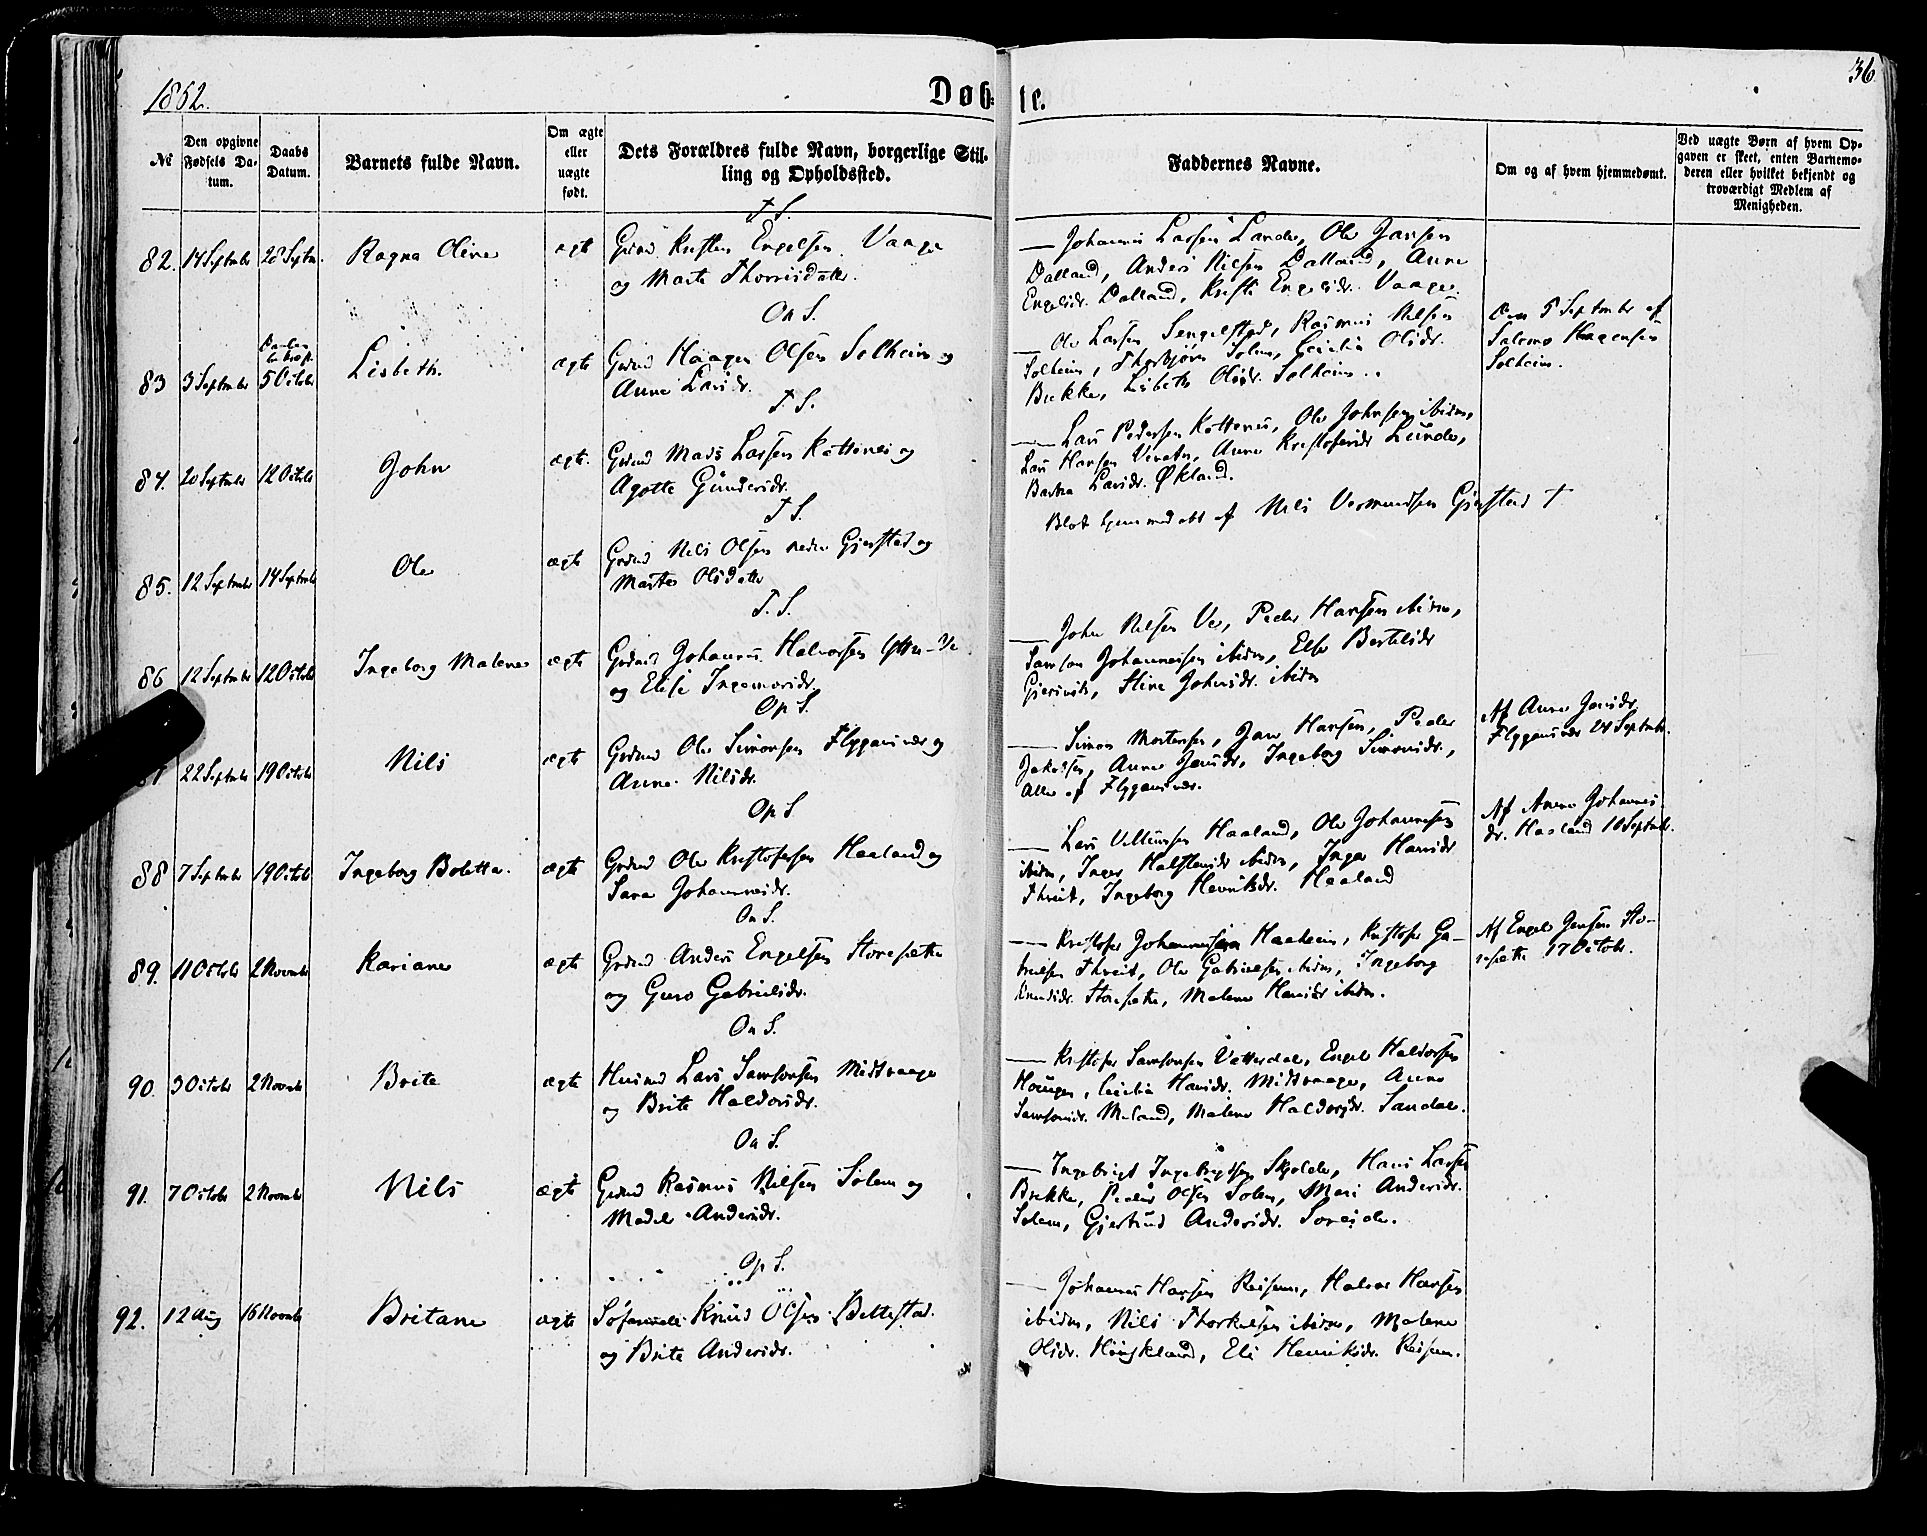 1862.
Døb-
te.
36
№
Den opgivne Fødsels Da-
tum.
Daabs
Datum.
Barnets fulde Navn.
Om ægte
eller
uægte
født.
Dets Forældres fulde Navn, borgerlige Stil-
ling og Opholdssted.
Faddernes Navne.
Om og af hvem hjemmedøbt.
Ved uægte Børn af hvem Op-
gaven er skeet, enten Barnemo-
deren eller hvilket bekjendt og
troværdigt Medlem af
Menigheden.
T. S.
82. 14 September 28 Septem. Ragna Oline ægte Grdmd Kristen Engelsen Vaage
og Marta Thorrisdatter.
— Johannes Larsen Lande, Ole Jansen
Dalland, Anders Nilsen Dalland, Anne
Engelsdr. Dalland, Kristi Engelsdr. Vaage.
On S.
83 3 September 5 October Lisbeth. ægte Grdmd Haagen Olsen Solheim og
Anne Larsdr.
— Ole Larsen Sengelstad, Rasmus Nilsen
Solheim, Thorbjørn Solem, Cecilia Olsdr.
Bække, Lisbeth Olsdr. Solheim.
Den 5 September af
Salomo Haagensen
Solheim.
T. S.
84. 20 September 12 October John ægte. Grdmd Mads Larsen Kattenes og
Agotte Gundersdr.
— Lars Pedersen Kattenes, Ole Johnsen ibidm,
Lars Hansen Veneta, Anne Kristofersdr Lunde,
Barbra Larsdr. Økland.
T S.
85. 12 September 14 September Ole ægte Grdmd Nels Olsen nedre Gjerstad og
Marta Olsdatter
Blot hjemmedøbt af Nils Vermundsen Gjerstad †
T. S.
86 12 September 12 October Ingeborg Malene ægte Grdmd Johannes Halvorsen Yttre-Ve
og Elisi Ingemorsdr.
— John Nelsen Ve, Peder Hansen ibidm,
Samson Johannessen ibidm, Else Bertelsdr
Gjersvik, Stine Johnsdr. ibidm
Op S.
87. 22 September 19 October Nils ægte Grdmd Ole Simonsen Flyggansvær og
Anne Nilsdr.
— Simon Mortensen, Jan Hansen, Peder
Jakobsen, Anne Jansdr, Ingeborg Simonsdr.,
Alle af Flyggansvær.
Af Anne Jansdr
Flyggansvær 24 Septembr.
Op S
88 7 September 19 October Ingeborg Boletta. ægte Grdmd Ole Kristofersen Haaland og
Sara Johannesdr.
— Lars Villumsen Haaland, Ole Johannessen
ibidm, Inger Halstensdr ibidm, Inger Hansdr
Thveit, Ingeborg Henriksdr. Haaland
Af Anne Johannes
dr. Haaland 10 Septembr.
On S.
89. 11 October 2 November Kariane ægte Grdmd Anders Engelsen Storesætre
og Guro Gabrielsdr.
— Kristofer Johannessen Haaheim, Kristofer Ga-
brielsen Thveit, Ole Gabrielsen ibidm, Ingeborg
Knudsdr. Storesætre, Malene Hansdr ibidm.
Af Engel Jensen Sto-
resætre 17 October.
On S.
90. 3 October 2 November Brite ægte Husmd Lars Samsonsen Midtvaage
og Brite Haldorsdr.
— Kristofer Samsonsen Vatterdal, Engel Haldorsen
Hauger, Cecilia Hansdr. Midtvaage, Anne
Samsonsdr. Meland, Malene Haldorsdr. Sandal.
On S.
91. 7 October 2 November Nils ægte Grdmd Rasmus Nilsen Solem og
Madel Andersdr.
— Ingebrigt Ingebrigtsen Skjelde, Hans Larsen
Brekke, Peder Olsen Solem, Mari Andersdr.
Solem, Gjertrud Andersdr. Soreide.
Op S.
92. 12 Aug 16 November Britane ægte Knud Olsen Bellestad
og Brite Andersdr.
— Johannes Hansen Reisem, Halvor Hansen
ibidm, Nils Thorkelsen ibidm, Malene
Olsdr. Høiskland, Eli Henriksdr. Reisem.